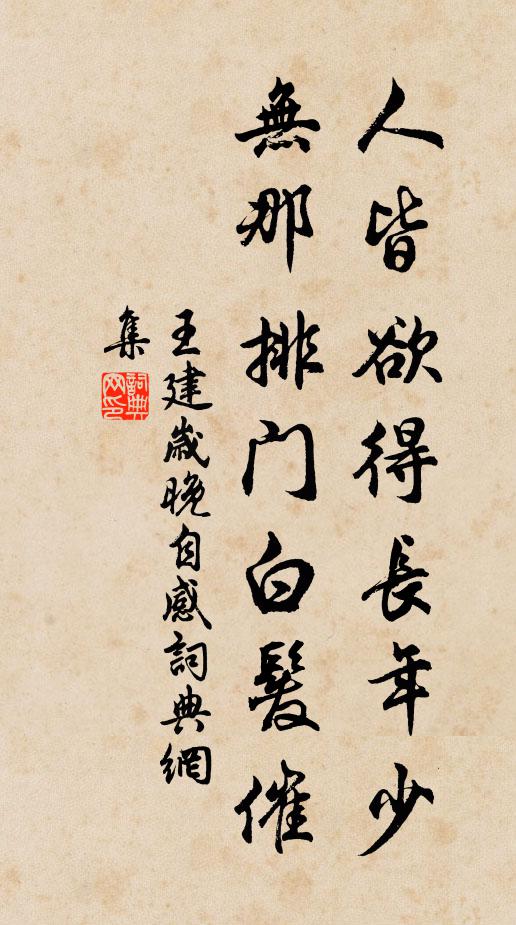 人皆欲得長年少
無那排门白髮催
王建歲晚自感詞典網
集
詞典
网印